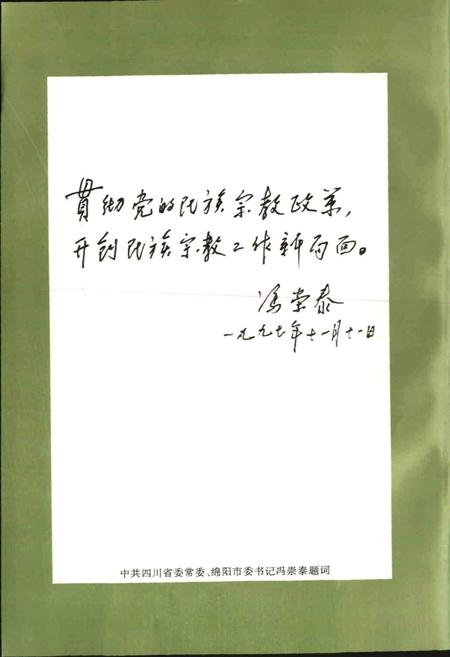 贯彻党的民族宗教政策，
开创民族宗教工作新局面。
冯崇泰
一九九七年十一月十一日
中共四川省委常委、绵阳市委书记冯崇泰题词